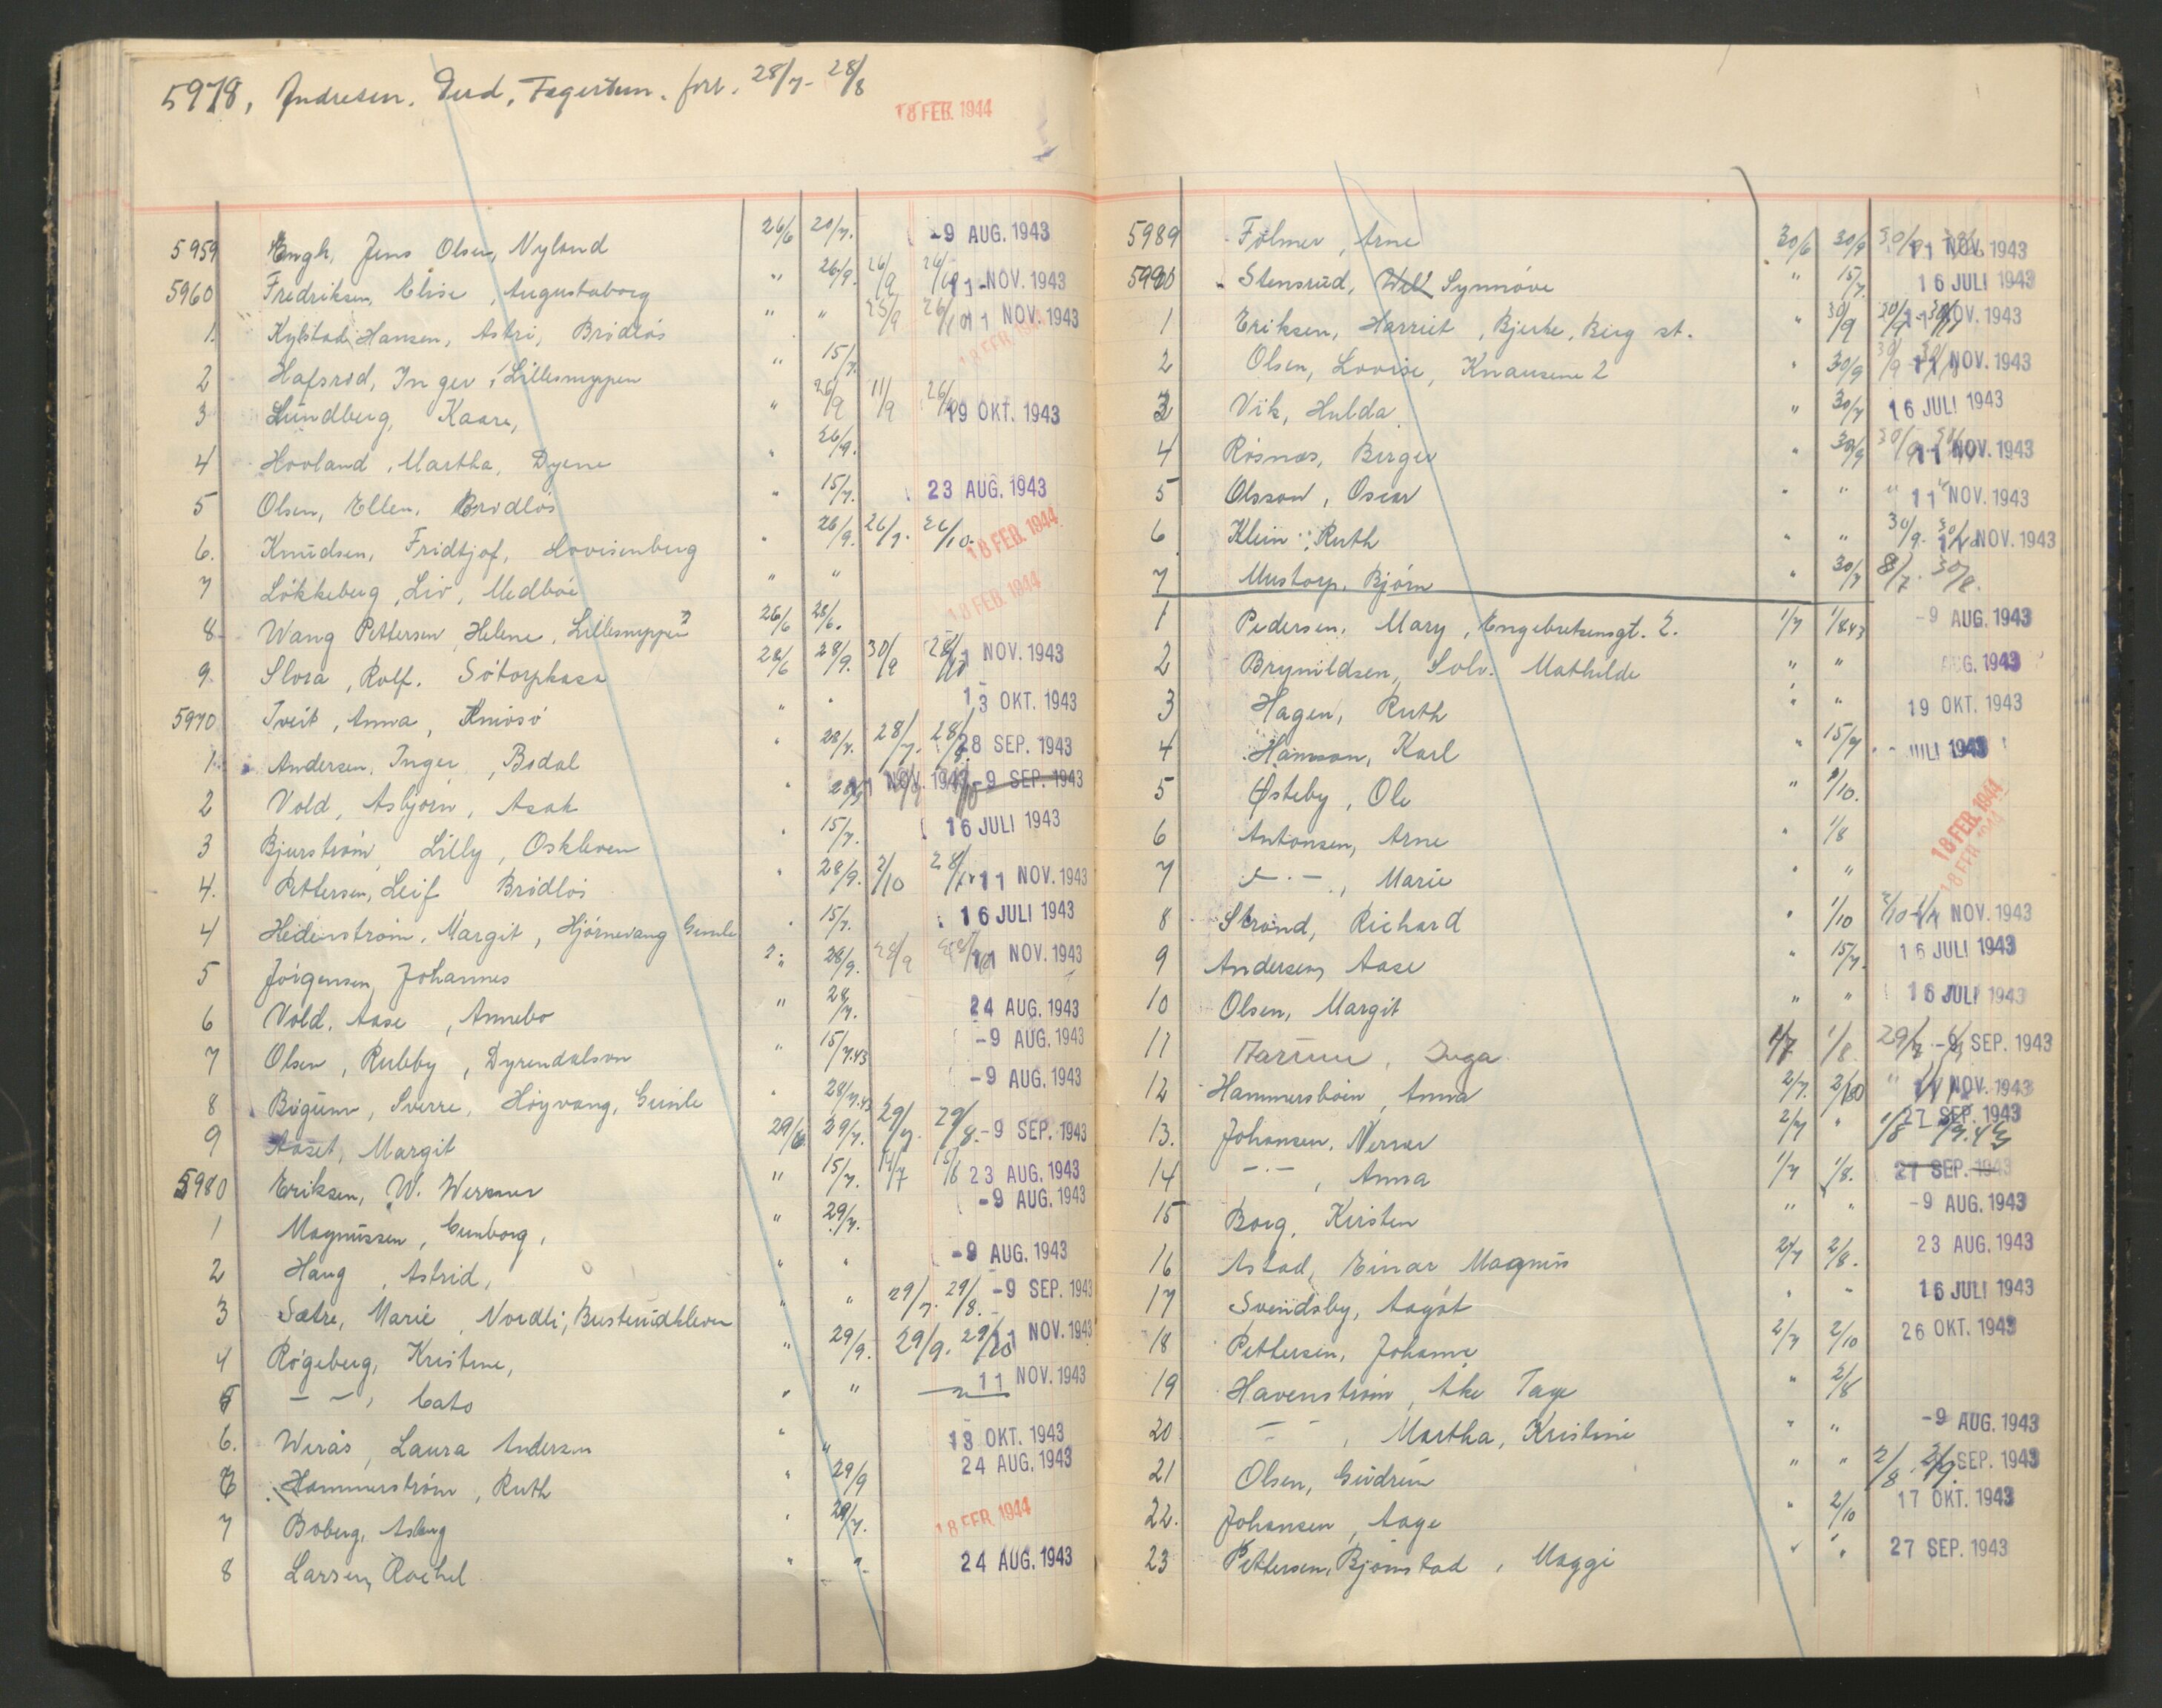 5978, Andresen. Gerd, Fagertun. forl. 28/7 - 28/8
18 FEB. 1944
5959 Engh, Jens Olsen, Nyland 26/6 20/7. -9 AUG. 1943
5960 Fredriksen, Elise, Augustaborg " 26/9. 26/9 26/10 11 NOV. 1943
1. Kylstad Hansen, Astri, Brödlös " " 25/9 26/10 11 NOV. 1943
18 FEB. 1944
2 Hafsrød, Inger, Lillesnyppen " 15/7.
3 Lundberg, Kaare, " 26/9 11/9 26/10 19 OKT. 1943
4 Hovland, Martha, Dyrne " 26/9.
5 Olsen, Ellen, Brödlös " 15/7. 23 AUG. 1943
6. Knudsen, Fridtjof, Lovisenberg " 26/9. 26/9. 26/10. 18 FEB. 1944
7 Lökkeberg, Liv, Medböe " " 18 FEB. 1944
8 Wang Pettersen, Helene, Lillesnyppen 2 26/6 28/6.
9 Slora, Rolf. Sötorpkasa 28/6 28/9. 30/9 28/10 11 NOV. 1943
5970 Tveit, Anna, Knivsö " " 13 OKT. 1943
1. Andersen, Inger, Bodal " 28/7. 28/7. 28/8. 28 SEP. 1943
2 Vold, Asbjörn, Asak " 28/9 11 NOV. 1943 -9 SEP. 1943
3 Bjurström, Lilly, Oskleven " 15/7. 16 JULI 1943
4. Pettersen, Leif Brödlös " 28/9. 2/10 28/10 11 NOV. 1943
4 Hedenström, Margit, Hjörnevang Gimle " 15/7. 16 JULI 1943
5 Jörgensen, Johannes " 28/9. 28/9 28/10 11 NOV. 1943
6 Vold, Aase, Annebo " 28/7. 24 AUG. 1943
7 Olsen, Rubby, Dyrendalsvn " 15/7.43 -9 AUG. 1943
8 Bögum, Sverre, Höyvang, Gimle " 28/7.43 -9 AUG. 1943
9 Aaset, Margit 29/6 29/7. 29/7. 29/8. -9 SEP. 1943
5980 Eriksen, W. Werner " 15/7. 14/7 15/8 23 AUG. 1943
1 Magnussen, Gunborg, " 29/7. -9 AUG. 1943
2 Haug, Astrid, " " -9 AUG. 1943
3 Sætre, Marie, Nordli, Busterudkleven " " 29/7. 29/8. -9 SEP. 1943
4 Rögeberg, Kristine, " 29/9. 29/9. 29/10 11 NOV. 1943
5 — — , Cato " " 11 NOV. 1943
6. Werås, Laura Andersen " " 13 OKT. 1943
6 Hammerström, Ruth " 29/9 24 AUG. 1943
7 Boberg, Aslaug " 29/7. 18 FEB. 1944
8 Larsen, Rachel " " 24 AUG. 1943
5989 Folmer, Arne 30/6 30/9 30/9 11 NOV. 1943
5990 Stensrud, Synnöve " 15/7. 16 JULI 1943
1 Eriksen, Harriet, Bjerke, Berg st. " 30/9 30/9 11 NOV. 1943
2 Olsen, Lovise, Knausene 2 " 30/9 30/9 11 NOV. 1943
3 Vik, Hulda " 30/7 16 JULI 1943
4 Rösnæs, Birger " 30/9 30/9 11 NOV. 1943
5 Olsson, Oscar " " " 11 NOV. 1943
6 Klein, Ruth " " 30/9. 30/10 11 NOV. 1943
7 Mustorp, Björn " 30/7 8/7. 30/8.
1 Pedersen, Mary, Engebretsensgt. 2. 1/7 1/8.43 -9 AUG. 1943
2 Brynildsen, Solv. Mathilde " " AUG. 1943
3 Hagen, Ruth " " 19 OKT. 1943
4 Hansson, Karl " 15/7 JULI 1943
5 Østeby, Ole " 1/10.
6 Antonsen, Arne " 1/8 18 FEB. 1944
7 — · — , Marie " " 18 FEB. 1944
8 Strand, Richard " 1/10 2/10 NOV. 1943
9 Andersen, Aase " 15/7. 16 JULI 1943
10 Olsen, Margit " " 16 JULI 1943
11 Inga 1/7 1/8. 29/7. -9 SEP. 1943
12 Hammersböen, Anna 2/7. 2/10 " 11 NOV. 1943
13. Johansen, Werner 2/7 " 1/8 1/9.43 27 SEP. 1943
14 — · — , Anna 1/7 1/8. 27 SEP. 1943
15 Borg, Kirsten " " -9 AUG. 1943
16 Astad, Einar Magnus 2/7 2/8. 23 AUG. 1943
17 Svendsby, Aagöt " " 16 JULI 1943
18 Pettersen, Johanne 2/7 2/10 26 OKT. 1943
19 Havenström, Åke Tage " 2/8
20 — — , Martha, Kristine " " -9 AUG. 1943
21 Olsen, Gudrun " " 2/8. 2/9. SEP. 1943
22. Johansen, Aage " 2/10 17 OKT. 1943
23 Pettersen, Björnstad, Maggi " " 27 SEP. 1943